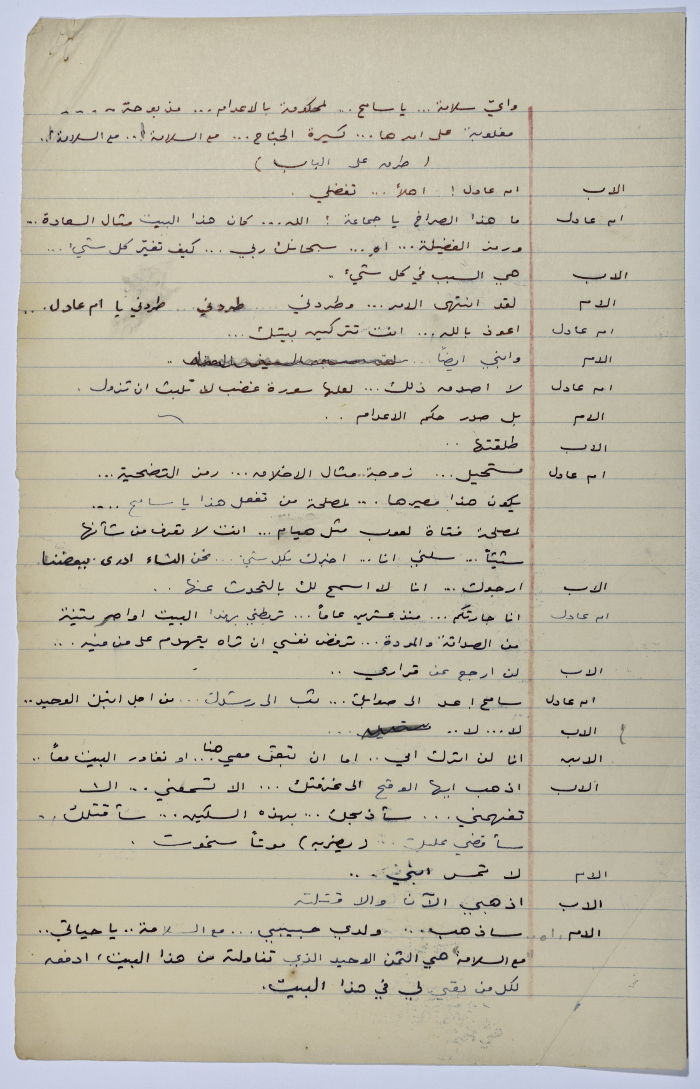 وايّ سلامة... يا سامح... لمحكومة بالاعدام... مذبوحة....
مغلوبة على امرها... كسيرة الجناح... مع السلامة!.. مع السلامة!..
( طرق على الباب )
الاب ام عادل! اهلاً... تفضلي.
ام عادل ما هذا الصراخ يا جماعة! الله... كان هذا البيت مثال السعادة...
ورمز الفضيلة... اه... سبحانك ربي... كيف تغيّر كل شيء...
الاب هي السبب في كل شيء..
الام لقد انتهى الامر... وطردني... طردني... طردني يا ام عادل...
ام عادل اعوذ بالله... انت تتركين بيتك...
الام وابني ايضاً...
ام عادل لا اصدق ذلك... لعلها سورة غضب لا تلبث ان تزول.
الام بل صدر حكم الاعدام..
الاب طلقتها..
ام عادل مستحيل... زوجة مثال الاخلاق... رمز التضحية...
يكون هذا مصيرها... لمصلحة من تفعل هذا يا سامح....
لمصلحة فتاة لعوب مثل هيام... انت لا تعرف من شأنها
شيئاً... سلني انا... اخبرك بكل شيء... نحن النساء ادرى ببعضنا
الاب ارجوك... انا لا اسمح لك بالتحدث عنها..
ام عادل انا جارتكم... منذ عشرين عاماً... تربطني بهذا البيت اواصر متينة
من الصداقة والمودة... ترفض نفسي ان تراه يتهدم على من فيه...
الاب لن ارجع عن قراري..
ام عادل سامح! عد الى صوابك... تب الى رشدك... من اجل ابنك الوحيد..
الاب لا... لا..
الابن انا لن اترك امي.. اما ان تبقى معي هنا... او نغادر البيت معاً..
الاب اذهب ايها الوقح الى غرفتك... الا تسمعني... الا
تفهمني... سأذبحك... بهذه السكين... سأقتلك..
سأقضي عليك... (يضربه) موتاً ستموت.
الام لا تمس ابني...
الاب اذهبي الآن والا قتلته
الام ساذهب... ولدي حبيبي... مع السلامة.. يا حياتي..
مع السلامة هي الثمن الوحيد الذي تناولته من هذا البيت، ادفعه
لكل من بقي لي في هذا البيت.